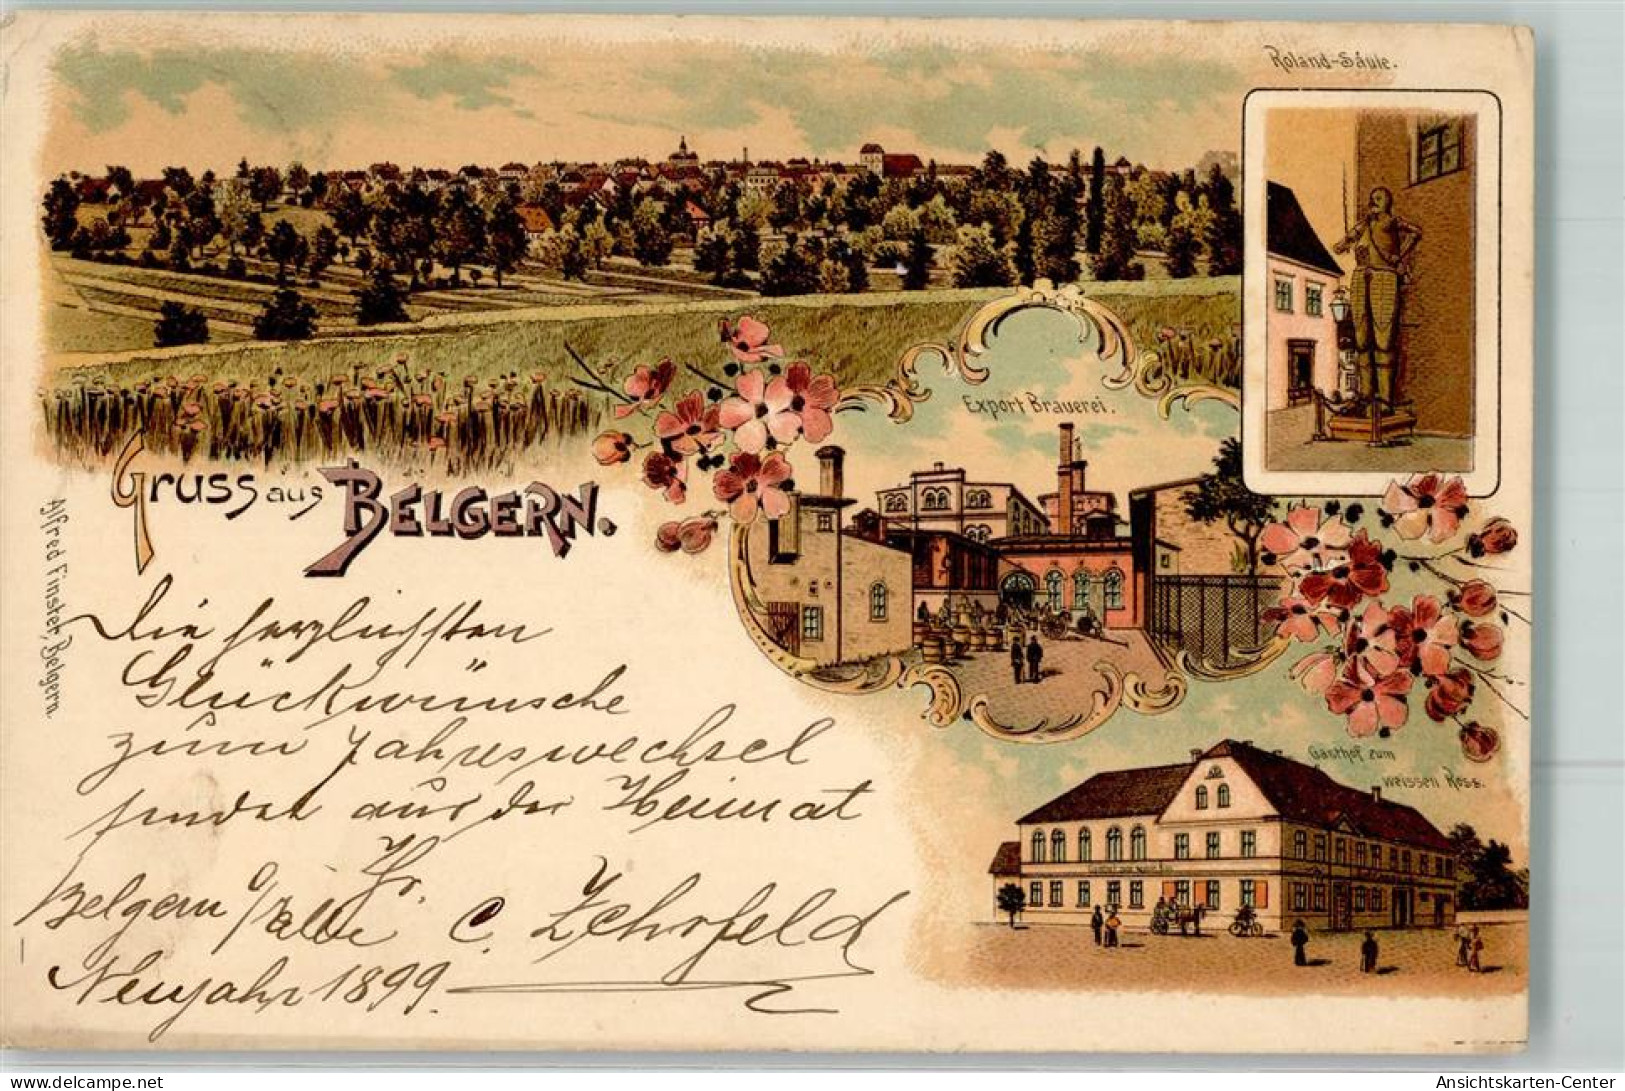 Roland-Säule.
Export Brauerei.
Gruss aus BELGERN.
Alfred Finster, Belgern.
Gasthof zum
weissen Ross.
Die herzlichsten
Glückwünsche
zum Jahreswechsel
sendet aus der Heimat
Hr.
Belgern a/Elbe C. Zehrfeld
Neujahr 1899.
delcampe.net
Ansichtskarten-Center